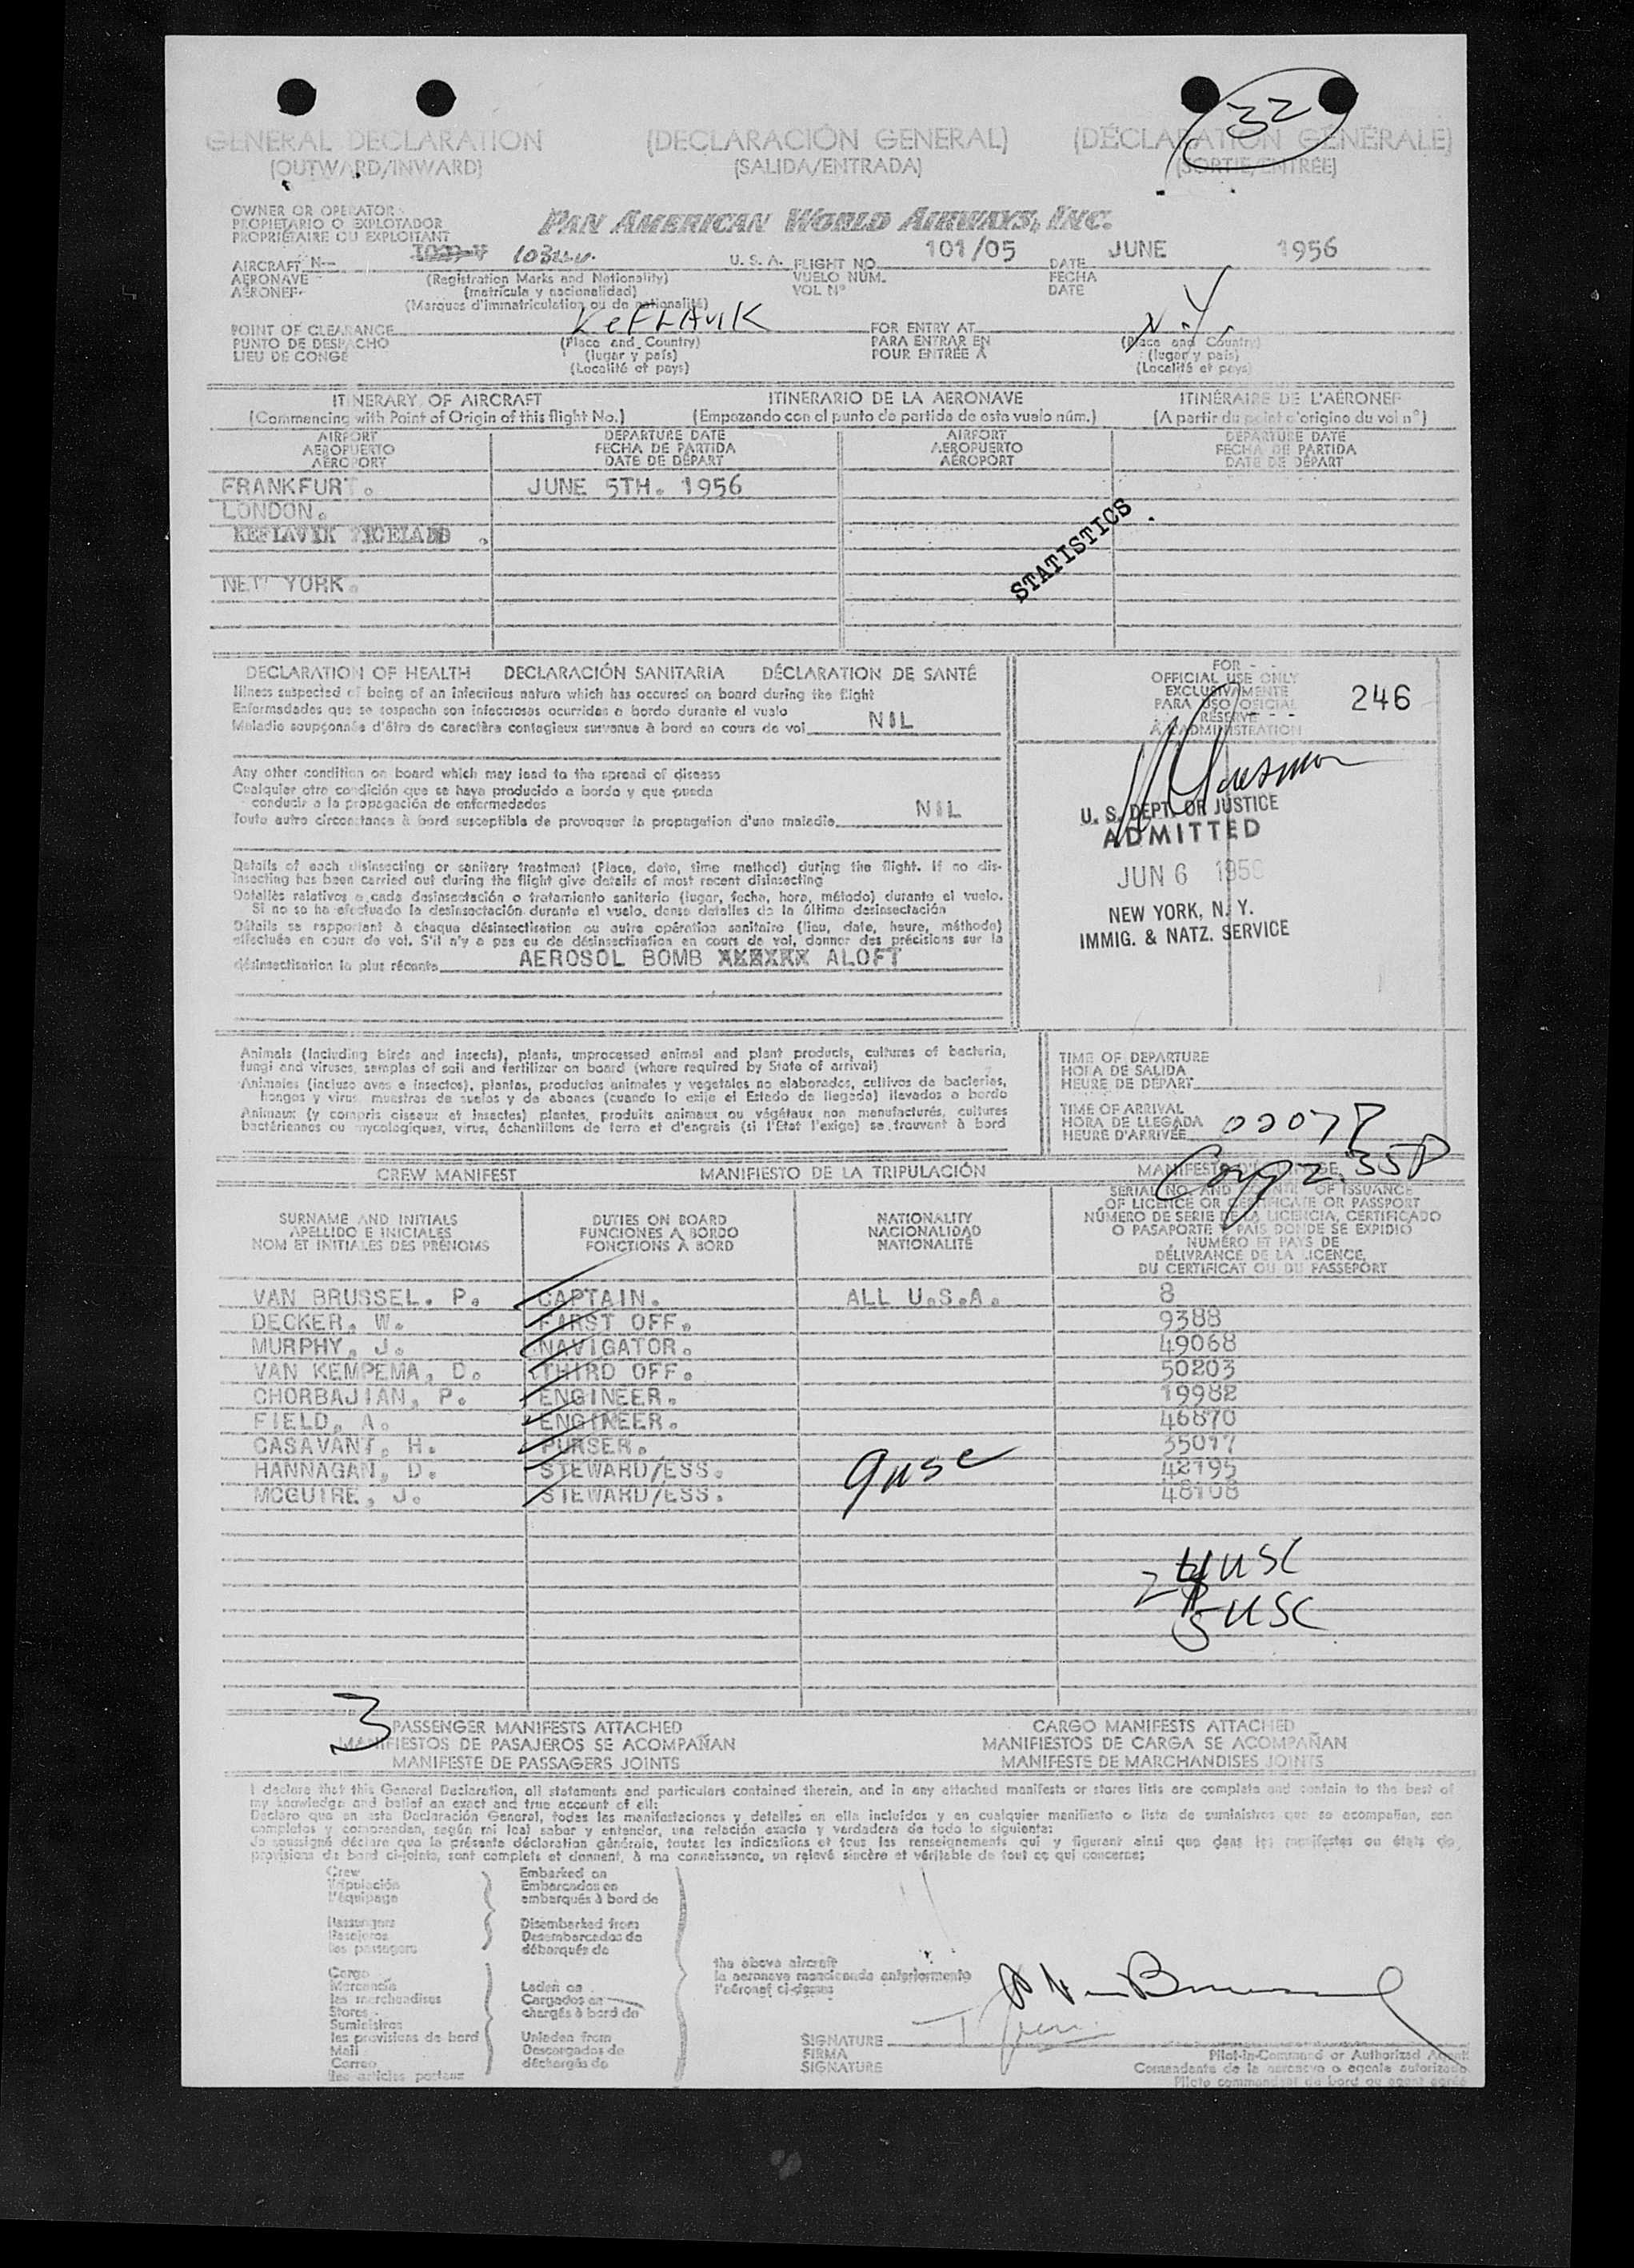 32
GENERAL DECLARATION (DECLARACIÓN GENERAL) (DÉCLARATION GÉNÉRALE)
(OUTWARD/INWARD) (SALIDA/ENTRADA) (SORTIE/ENTRÉE)
OWNER OR OPERATOR
PROPIETARIO O EXPLOTADOR
PROPRIÉTAIRE OU EXPLOITANT
PAN AMERICAN WORLD AIRWAYS, INC.
AIRCRAFT N— U. S. A. FLIGHT NO. 101/05 DATE JUNE 1956
AERONAVE (Registration Marks and Nationality) VUELO NÚM. FECHA
AÉRONEF (matrícula y nacionalidad) VOL Nº DATE
(Marques d'immatriculation ou de nationalité)
POINT OF CLEARANCE KEFLAVIK FOR ENTRY AT N.Y.
PUNTO DE DESPACHO (Place and Country) PARA ENTRAR EN (Place and Country)
LIEU DE CONGÉ (lugar y país) POUR ENTRÉE À (lugar y país)
(Localité et pays) (Localité et pays)
ITINERARY OF AIRCRAFT ITINERARIO DE LA AERONAVE ITINÉRAIRE DE L'AÉRONEF
(Commencing with Point of Origin of this flight No.) (Empezando con el punto de partida de este vuelo núm.) (A partir du point d'origine du vol nº)
AIRPORT DEPARTURE DATE AIRPORT DEPARTURE DATE
AEROPUERTO FECHA DE PARTIDA AEROPUERTO FECHA DE PARTIDA
AÉROPORT DATE DE DÉPART AÉROPORT DATE DE DÉPART
FRANKFURT. JUNE 5TH. 1956
LONDON.
KEFLAVIK ICELAND .
STATISTICS
NEW YORK.
DECLARATION OF HEALTH DECLARACIÓN SANITARIA DÉCLARATION DE SANTÉ
Illness suspected of being of an infectious nature which has occured on board during the flight
Enfermedades que se sospecha son infecciosas ocurridas a bordo durante el vuelo
Maladie soupçonnée d'être de caractère contagieux survenue à bord en cours de vol NIL
Any other condition on board which may lead to the spread of disease
Cualquier otra condición que se haya producido a bordo y que pueda
conducir a la propagación de enfermedades
Toute autre circonstance à bord susceptible de provoquer la propagation d'une maladie NIL
Details of each disinsecting or sanitary treatment (Place, date, time method) during the flight. If no dis-
insecting has been carried out during the flight give details of most recent disinsecting
Detalles relativos a cada desinsectación o tratamiento sanitario (lugar, fecha, hora, método) durante el vuelo.
Si no se ha efectuado la desinsectación durante el vuelo, dense detalles de la última desinsectación
Détails se rapportant à chaque désinsectisation ou autre opération sanitaire (lieu, date, heure, méthode)
effectuée en cours de vol. S'il n'y a pas eu de désinsectisation en cours de vol, donner des précisions sur la
désinsectisation la plus récente AEROSOL BOMB ALOFT
FOR
OFFICIAL USE ONLY
EXCLUSIVAMENTE
PARA USO OFICIAL
RÉSERVÉ
A L'ADMINISTRATION
246
U. S. DEPT. OF JUSTICE
ADMITTED
JUN 6 1956
NEW YORK, N. Y.
IMMIG. & NATZ. SERVICE
Animals (including birds and insects), plants, unprocessed animal and plant products, cultures of bacteria,
fungi and viruses, samples of soil and fertilizer on board (where required by State of arrival)
Animales (incluso aves e insectos), plantas, productos animales y vegetales no elaborados, cultivos de bacterias,
hongos y virus, muestras de suelos y de abonos (cuando lo exija el Estado de llegada) llevados a bordo
Animaux (y compris oiseaux et insectes) plantes, produits animaux ou végétaux non manufacturés, cultures
bactériennes ou mycologiques, virus, échantillons de terre et d'engrais (si l'Etat l'exige) se trouvant à bord
TIME OF DEPARTURE
HORA DE SALIDA
HEURE DE DÉPART
TIME OF ARRIVAL
HORA DE LLEGADA
HEURE D'ARRIVÉE
CREW MANIFEST MANIFIESTO DE LA TRIPULACIÓN
SURNAME AND INITIALS DUTIES ON BOARD NATIONALITY
APELLIDO E INICIALES FUNCIONES A BORDO NACIONALIDAD
NOM ET INITIALES DES PRÉNOMS FONCTIONS À BORD NATIONALITÉ
SERIAL NO. AND OF ISSUANCE
OF LICENCE OR CERTIFICATE OR PASSPORT
NÚMERO DE SERIE DE LA LICENCIA, CERTIFICADO
O PASAPORTE Y PAIS DONDE SE EXPIDIÓ
NUMÉRO ET PAYS DE
DÉLIVRANCE DE LA LICENCE,
DU CERTIFICAT OU DU PASSEPORT
VAN BRUSSEL. P. CAPTAIN. ALL U.S.A. 8
DECKER, W. FIRST OFF. 9388
MURPHY, J. NAVIGATOR. 49068
VAN KEMPEMA, D. THIRD OFF. 50203
CHORBAJIAN, P. ENGINEER. 19982
FIELD, A. ENGINEER. 46870
CASAVANT, H. PURSER. 35097
HANNAGAN, D. STEWARD/ESS. 9 USC 48195
MCGUIRE, J. STEWARD/ESS. 48108
USC
USC
3
PASSENGER MANIFESTS ATTACHED CARGO MANIFESTS ATTACHED
MANIFIESTOS DE PASAJEROS SE ACOMPAÑAN MANIFIESTOS DE CARGA SE ACOMPAÑAN
MANIFESTE DE PASSAGERS JOINTS MANIFESTE DE MARCHANDISES JOINTS
I declare that this General Declaration, all statements and particulars contained therein, and in any attached manifests or stores lists are complete and contain to the best of
my knowledge and belief an exact and true account of all:
Declaro que en esta Declaración General, todas las manifestaciones y detalles en ella incluidos y en cualquier manifiesto o lista de suministros que se acompañan, son
completos y comprenden, según mi leal saber y entender, una relación exacta y verdadera de todo lo siguiente:
Je soussigné déclare que la présente déclaration générale, toutes les indications et tous les renseignements qui y figurent ainsi que dans les manifestes ou états de
provisions de bord ci-joints, sont complets et donnent, à ma connaissance, un relevé sincère et véritable de tout ce qui concerne:
Crew Embarked on
Tripulación Embarcados en
l'équipage embarqués à bord de
Passengers Disembarked from
Pasajeros Desembarcados de
les passagers débarqués de
Cargo
Mercancía Laden on
les marchandises Cargados en
Stores chargés à bord de
Suministros
les provisions de bord Unladen from
Mail Descargados de
Correo déchargés de
les articles postaux
the above aircraft
la aeronave mencionada anteriormente
l'aéronef ci-dessus
SIGNATURE
FIRMA
SIGNATURE
Pilot-in-Command or Authorized Agent
Comandante de la aeronave o agente autorizado
Pilote commandant de bord ou agent agréé